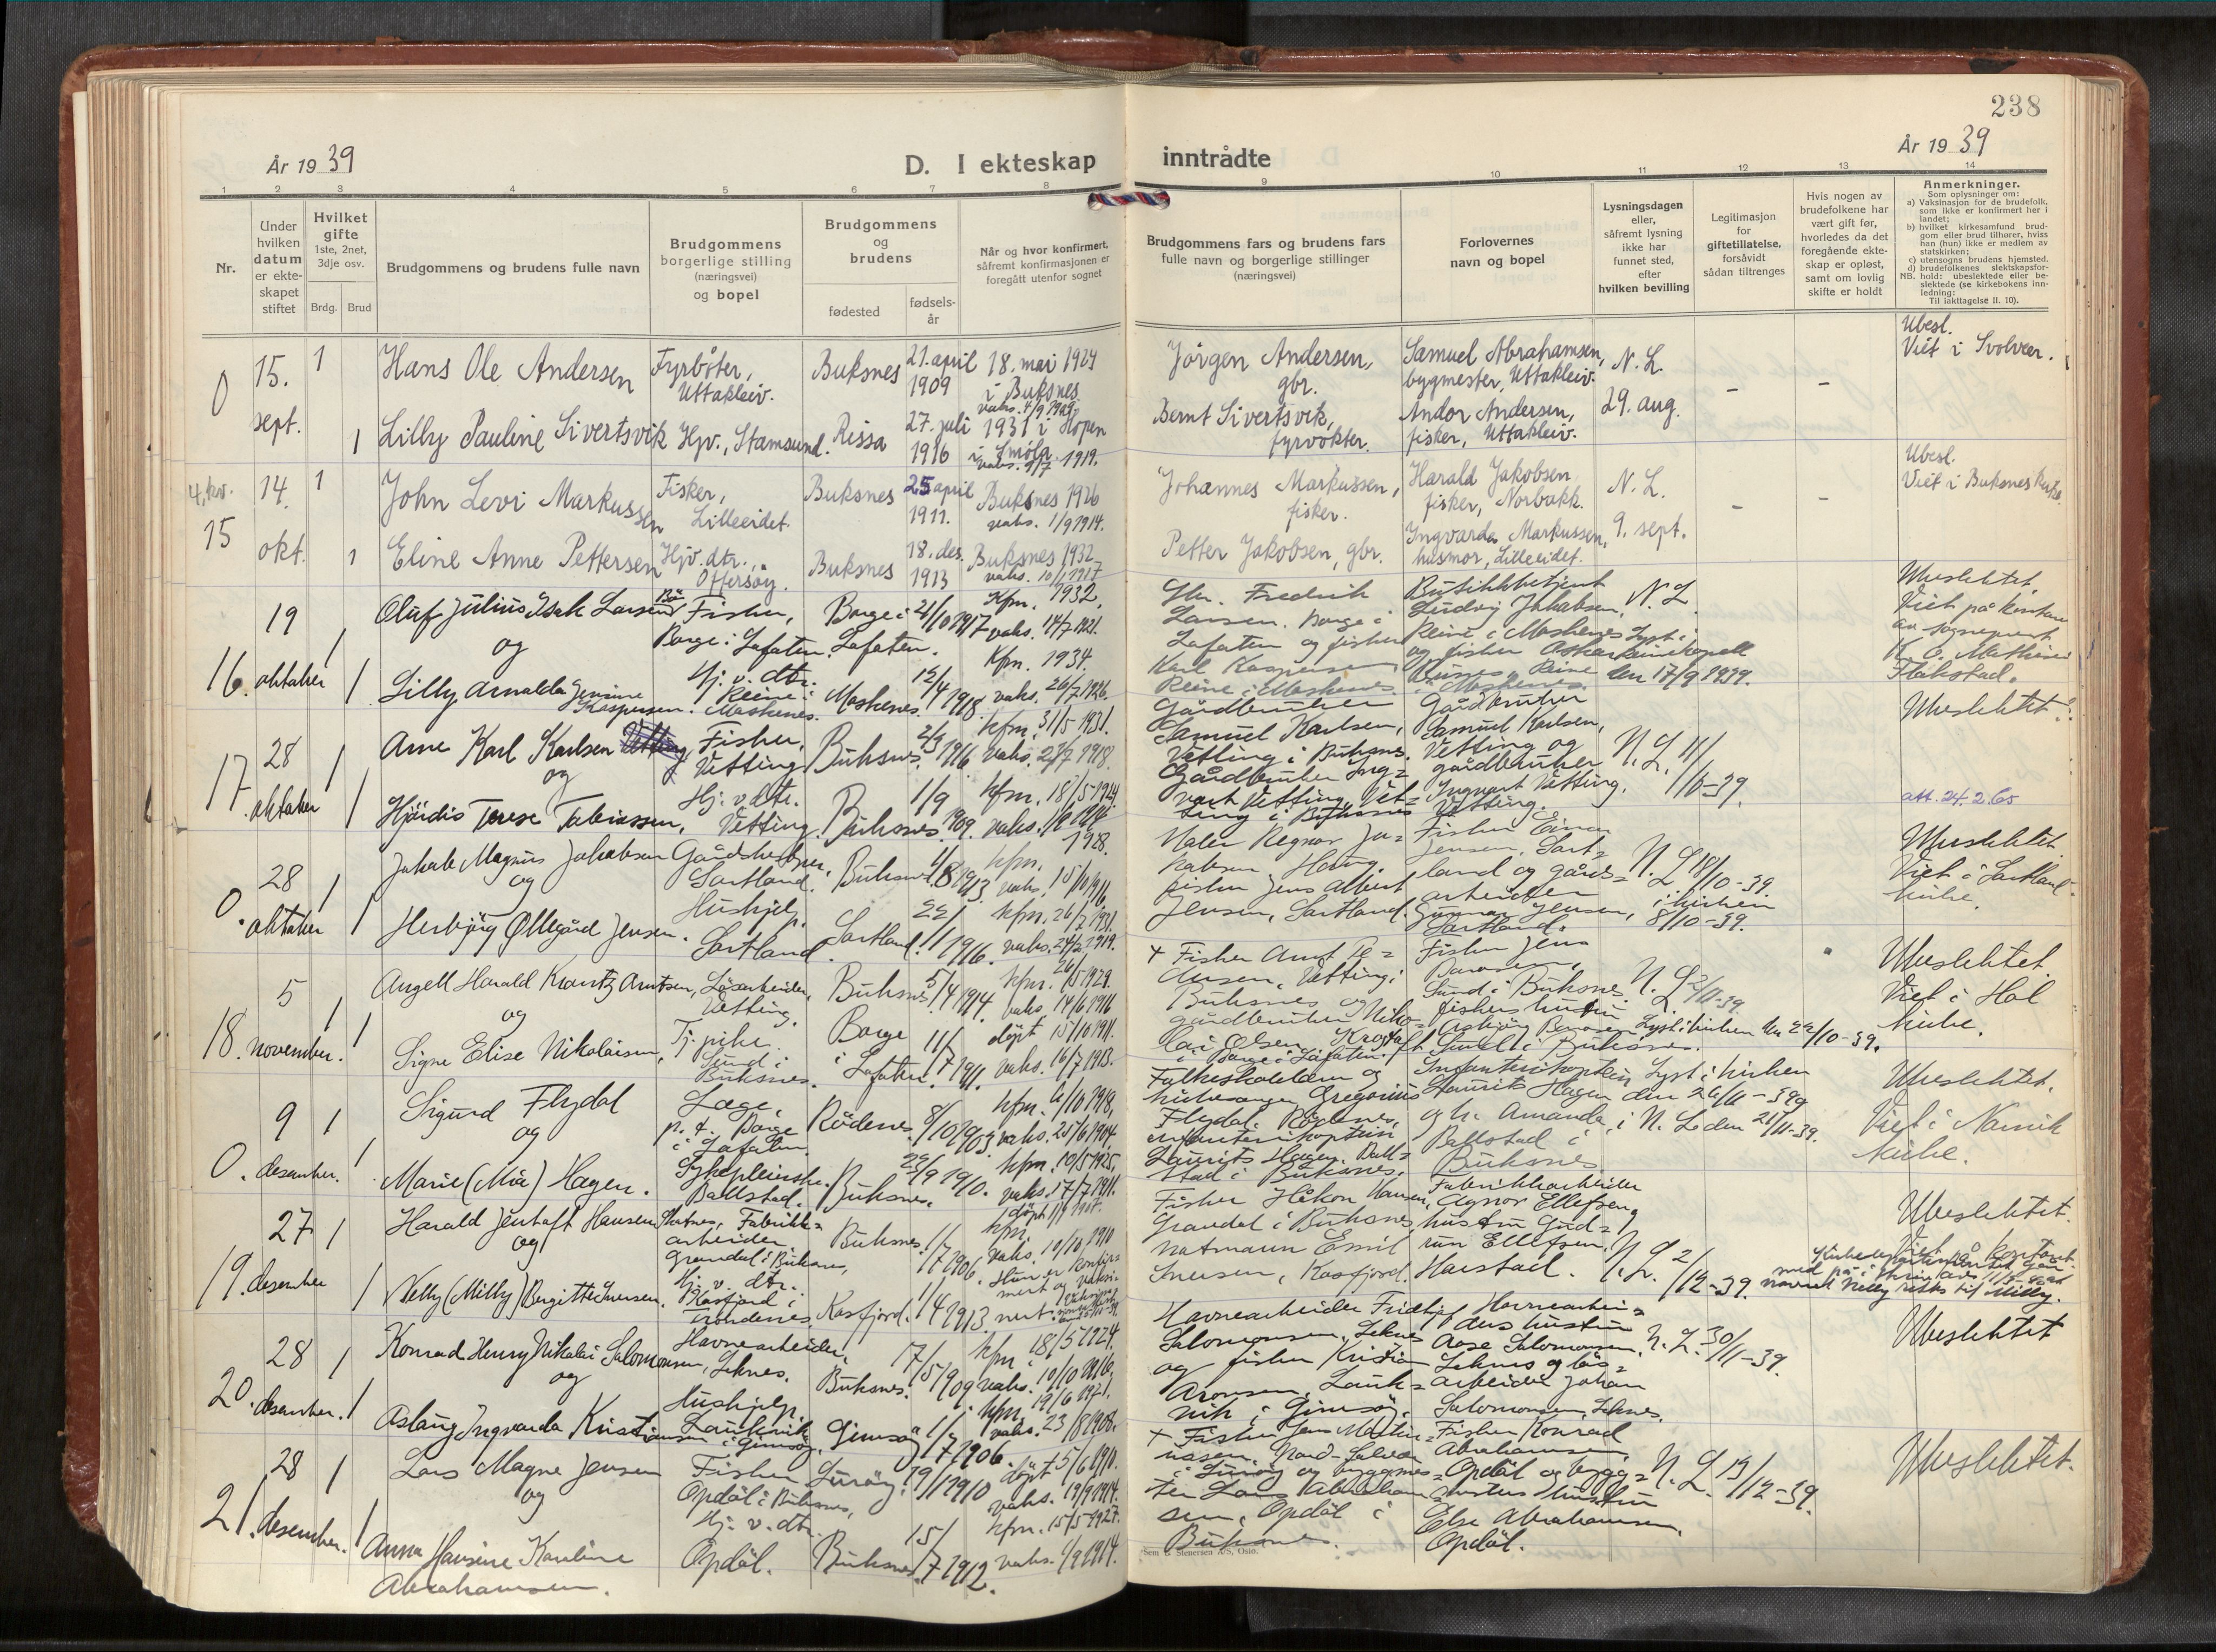 238
År 19 39
D. I ekteskap
inntrådte
År 19 39
1
2
3
4
5
6
7
8
9
10
11
12
13
14
Nr.
Under
hvilken
datum
er ekte-
skapet
stiftet
Hvilket
gifte
1ste, 2net,
3dje osv.
Brdg.
Brud
Brudgommens og brudens fulle navn
Brudgommens
borgerlige stilling
(næringsvei)
og bopel
Brudgommens
og
brudens
fødested
fødsels-
år
Når og hvor konfirmert,
såfremt konfirmasjonen er
foregått utenfor sognet
Brudgommens fars og brudens fars
fulle navn og borgerlige stillinger
(næringsvei)
Forlovernes
navn og bopel
Lysningsdagen
eller,
såfremt lysning
ikke har
funnet sted,
efter
hvilken bevilling
Legitimasjon
for
giftetillatelse,
forsåvidt
sådan tiltrenges
Hvis nogen av
brudefolkene har
vært gift før,
hvorledes da det
foregående ekte-
skap er opløst,
samt om lovlig
skifte er holdt
Anmerkninger.
Som oplysninger om:
a) Vaksinasjon for de brudefolk,
som ikke er konfirmert her i
landet;
b) hvilket kirkesamfund brud-
gom eller brud tilhører, hviss
han (hun) ikke er medlem av
statskirken;
c) utensogns brudens hjemsted.
d) brudefolkenes slektskapsfor-
NB. hold: ubeslektede eller be-
slektede (se kirkebokens inn-
ledning:
Til iakttagelse II. 10).
0
15.
sept.
1
Hans Ole Andersen
Fyrbøter,
Uttakleiv.
Buksnes
21. april
1909
18. mai 1924
i Buksnes
vaks. 4/9 1909.
Jörgen Andersen,
gbr.
Samuel Abrahamsen,
bygmester, Uttakleiv.
N. L.
29. aug.
–
–
Ubesl.
Viet i Svolvær.
1
Lilly Pauline Sivertsvik
Hjv., Stamsund.
Rissa
27. juli
1916
1931 i Hopen
i Smöla.
vaks. 9/7 1919.
Bernt Sivertsvik,
fyrvokter.
Andor Andersen,
fisker, Uttakleiv.
4. kv.
15
14.
okt.
1
John Levi Markussen
Fisker,
Lilleeidet.
Buksnes
25 april
1911.
Buksnes 1926
vaks. 1/9 1914.
Johannes Markussen,
fisker.
Harald Jakobsen
fisker, Norbakk.
N. L.
9. sept.
–
–
Ubesl.
Viet i Buksnes kirke.
1
Eline Anne Pettersen
Hjv. dtr.,
Offersøy.
Buksnes
18. des.
1913
Buksnes 1932
vaks. 10/1 1917
Petter Jakobsen, gbr.
Ingvarda Markussen,
husmor, Lilleeidet.
16.
19
oktober
1
Oluf Julius Isak Larsen
og
Fisker,
Borge i Lofoten.
Borge i
Lofoten.
21/10 1917
Kfm. 1932.
vaks. 14/7 1921.
Gbr. Fredrik
Larsen. Borge i
Lofoten og fisker
Karl Kaspersen
Reine i Moskenes.
Butikkbetjent
Ludvig Jakobsen,
Reine i Moskenes
og fisker
Reine
i Moskenes.
N. L.
Lyst i
Reine kapell
den 17/9 1939.
Ubeslektet.
Viet på kontoret
av sogneprest
Mathisen
Flakstad.
1
Lilly Arnalda Jensine
Kaspersen.
Hj. v. dtr.
Reine i
Moskenes.
Moskenes.
12/4 1918
Kfm. 1934.
vaks. 26/7 1926.
17
28
oktober
1
Arne Karl Karlsen
og
Fisker,
Vetting
Buksnes.
2/9 1916
kfm. 31/5 1931.
vaks. 27/7 1918.
Gårdbruker
Samuel Karlsen,
Vetting i Buksnes.
Gårdbruker Ing=
vart Vetting, Vet=
ting i Buksnes
Gårdbruker
Samuel Karlsen,
Vetting og
gårdbruker
Ingvart Vetting,
Vetting.
N. L. 11/10-39.
Ubeslektet.
att. 24.2.65
1
Hjördis Terese Tobiassen,
Hj. v. dtr.
Vetting
Buksnes
1/9 1909.
kfm. 18/5 1924.
0.
28
oktober
1
Jakob Magnus Jakobsen
og
Gårdsarbeider,
Sortland.
Buksnes.
kfm. 1928.
vaks. 15/10 1916.
Maler Regnor Ja=
kobsen Haug.
fisker Jens Albert
Jensen, Sortland.
Fisker Einar
Jensen, Sort=
land og gårds=
arbeider
Gunnar Jensen,
Sortland.
N. L. 18/10-39.
i kirken
8/10-39.
Ubeslektet.
Viet i Sortland
kirke.
1
Herbjörg Øllegård Jensen.
Hushjelp.
Sortland.
Sortland.
22/1 1916.
kfm. 26/7 1931.
vaks. 24/2 1919.
18.
5
november.
1
Angell Harald Krantz Arntsen,
og
Løsarbeider,
Vetting.
Buksnes.
5/4 1914.
kfm. 26/5 1929.
vaks. 14/6 1916
+ Fisker Arnt Pe=
dersen, Vetting i
Buksnes og
gårdbruker Niko=
lai Olsen
i Borge i Lofoten.
Fisker Jens
Sund i Buksnes
fiskers hustru
Asbjörg
Sund i Buksnes.
N. L. 2/11-39
Lyst i kirken den 22/10-39.
Ubeslektet.
Viet i Hol
kirke.
1
Signe Elise Nikolaisen,
Tj. pike.
Sund i
Buksnes.
Borge
i Lofoten.
11/7 1911.
døpt 15/10 1911.
vaks. 16/7 1913.
0.
9
desember.
1
Sigurd Flydal
og
Læge,
p. t. Borge
i Lofoten.
Rödenes.
8/10 1903
kfm. 6/10 1918,
vaks. 25/6 1904.
kirkesanger Gregorius
Flydal. Rödenes,
infanterikaptein
Laurits Hagen. Ball=
stad i Buksnes.
Infanterikaptein
Laurits Hagen
og fr. Amanda,
Ballstad i
Buksnes.
Lyst i kirken
den 26/11-39 og
i N. L. den 21/11-39.
Ubeslektet.
Viet i Narvik
kirke.
1
Marie (Mia) Hagen.
Sykepleierske.
Ballstad.
Buksnes.
29/9 1910.
kfm. 10/5 1925,
vaks. 17/7 1911.
19.
27
desember
1
Harald Jentoft Hansen
og
Fabrikk=
arbeider
Gravdal i Buksnes,
Buksnes.
1/7 1906.
kfm.
vaks. 10/10 1910
Fisker Håkon Hansen,
Gravdal i Buksnes,
notmann Emil
Iversen, Kasfjord.
Fabrikkarbeider
Agnor Ellefsen
hustru Gud=
run Ellefsen,
Harstad.
N. L. 2/12-39.
Ubeslektet.
navnet Nelly rettes til Milly.
1
Nelly (Milly) Birgitte Iversen.
Hj. v. dtr.
Kasfjord i
Trondenes.
Kasfjord.
1/4 1913
Hun er konfir=
mert og vaksi=
nert.
20.
28
desember.
1
Konrad Henry Nikolai Salomonsen,
og
Havnearbeider,
Leknes.
Buksnes.
17/5 1909
kfm. 18/5 1924.
vaks. 10/10 1916.
Havnearbeider Fridtjof
Salomonsen, Leknes
og fisker Kristian
Aronsen, Lauk=
vik i Gimsöy.
Havnearbei=
ders hustru
Aase Salomonsen,
Leknes og løs=
arbeider Johan
Salomonsen, Leknes.
N. L. 30/11-39.
Ubeslektet
1
Aslaug Ingvarda Kristiansen
Hushjelp.
Laukvik
i Gimsöy.
Gimsöy
1/7 1906.
kfm. 19/6 1921.
vaks. 23/8 1908.
21.
28
desember.
1
Lars Magne Jensen
og
Fisker
Opdöl i Buksnes,
Luröy.
19/1 1910
døpt 5/6 1910.
vaks. 19/9 1914.
+ Fisker Jens Martin
i Luröy og byggmes=
ter Lars Abraham=
sen, Opdöl i
Buksnes.
Fisker Konrad
Abrahamsen,
Opdöl og bygg=
mesters hustru
Else Abrahamsen,
Opdöl.
N. L. 19/12-39.
Ubeslektet.
1
Anna Hansine Karoline
Abrahamsen.
Hj. v. dtr.
Opdöl.
Buksnes.
15/7 1912.
kfm. 15/5 1927.
vaks. 1/9 1914.
Sem & Stenersen A/S, Oslo.